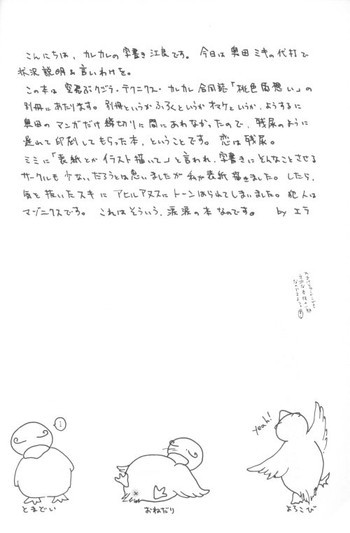 こんにちは、カレカレの字書き江良です。今日は奥田ミキの代村で
状況説明&言いわけを。
この本は 空君ぷクヅラ・テクニクス・カレカレ 合同誌「桃色
別冊にあたります。別冊というかふろくというかオマケというか、ようするに
奥田の マンガだけ締切りに間にあわなかったので、残尿のように
遅れて印刷してもらった本、ということです。恋は残尿。
ミミに「表紙とかイラスト描いて」と言われ、字書きにどんなことさせる
サークルも少ないだろうとは思いましたが私が表紙描きました。したら、
気を抜いたスキにアヒルアヌスにトーンはられてしまいました。犯人は
マゾニクスです。 これはそういう、涙涙の本なのです。 by エラ
Yeah!
とまどい
おねだり
よろこび